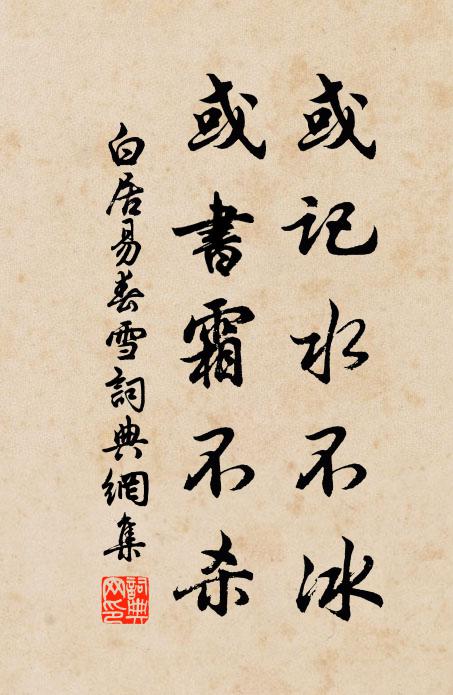 或记水不冰
或書霜不杀
白居易春雪詞典網集
詞典網印